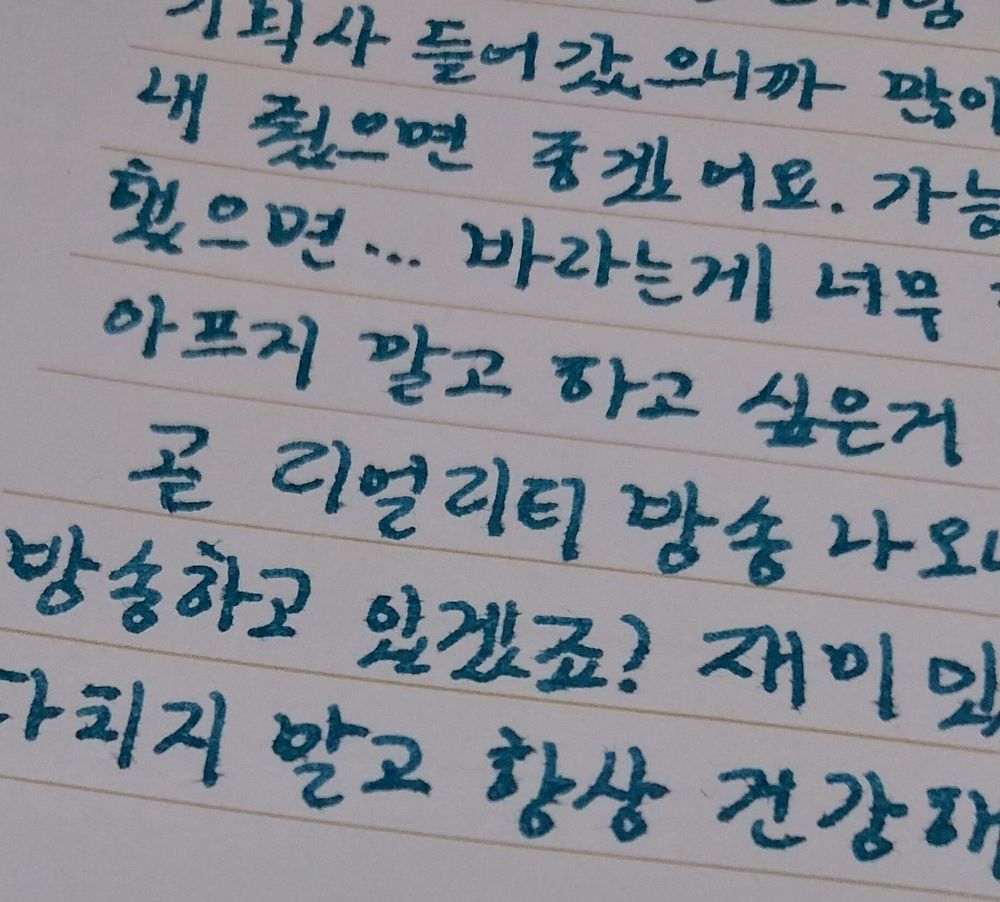 기획사 들어갔으니까 많이
내 줬으면 좋겠어요. 가능
했으면... 바라는게 너무
아프지 말고 하고 싶은거
곧 리얼리티 방송 나오
방송하고 있겠죠? 재미 있
다치지 말고 항상 건강해